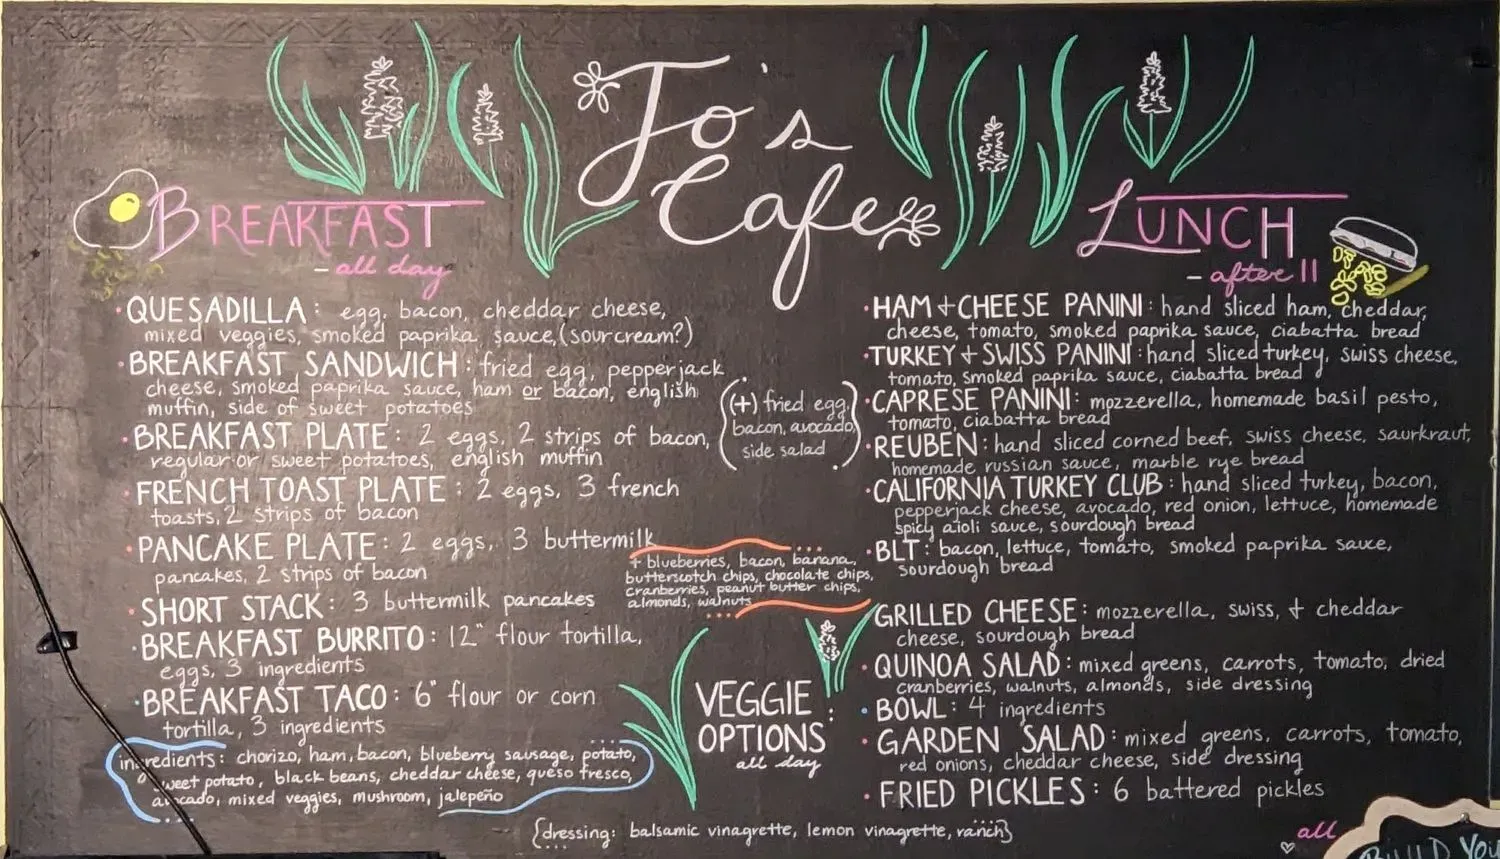 Jo's
Cafe
BREAKFAST
- all day
• QUESADILLA: egg, bacon, cheddar cheese,
mixed veggies, smoked paprika sauce, (sour cream?)
• BREAKFAST SANDWICH: fried egg, pepperjack
cheese, smoked paprika sauce, ham or bacon, english
muffin, side of sweet potatoes
• BREAKFAST PLATE: 2 eggs, 2 strips of bacon,
regular or sweet potatoes, english muffin
• FRENCH TOAST PLATE: 2 eggs, 3 french
toasts, 2 strips of bacon
• PANCAKE PLATE: 2 eggs, 3 buttermilk
pancakes, 2 strips of bacon
• SHORT STACK: 3 buttermilk pancakes
• BREAKFAST BURRITO: 12" flour tortilla,
eggs, 3 ingredients
• BREAKFAST TACO: 6" flour or corn
tortilla, 3 ingredients
ingredients: chorizo, ham, bacon, blueberry sausage, potato,
sweet potato, black beans, cheddar cheese, queso fresco,
avocado, mixed veggies, mushroom, jalepeño
(+) fried egg,
bacon, avocado,
side salad
+ blueberries, bacon, banana,
butterscotch chips, chocolate chips,
cranberries, peanut butter chips,
almonds, walnuts
VEGGIE
OPTIONS:
all day
{dressing: balsamic vinagrette, lemon vinagrette, ranch}
LUNCH
- after 11
• HAM + CHEESE PANINI: hand sliced ham, cheddar,
cheese, tomato, smoked paprika sauce, ciabatta bread
• TURKEY + SWISS PANINI: hand sliced turkey, swiss cheese,
tomato, smoked paprika sauce, ciabatta bread
• CAPRESE PANINI: mozzerella, homemade basil pesto,
tomato, ciabatta bread
• REUBEN: hand sliced corned beef, swiss cheese, saurkraut,
homemade russian sauce, marble rye bread
• CALIFORNIA TURKEY CLUB: hand sliced turkey, bacon,
pepperjack cheese, avocado, red onion, lettuce, homemade
spicy aioli sauce, sourdough bread
• BLT: bacon, lettuce, tomato, smoked paprika sauce,
sourdough bread
GRILLED CHEESE: mozzerella, swiss, + cheddar
cheese, sourdough bread
• QUINOA SALAD: mixed greens, carrots, tomato, dried
cranberries, walnuts, almonds, side dressing
• BOWL: 4 ingredients
• GARDEN SALAD: mixed greens, carrots, tomato,
red onions, cheddar cheese, side dressing
• FRIED PICKLES: 6 battered pickles
♡ all
BUILD YOU